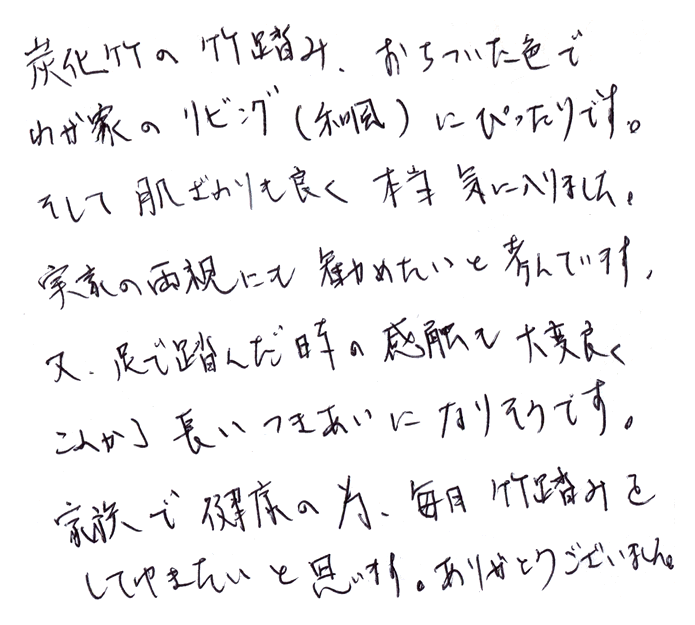 炭化竹の竹踏み、おちついた色で
わが家のリビング(和風)にぴったりです。
そして肌ざわりも良く本当気に入りました。
実家の両親にも勧めたいと考えています。
又、足で踏んだ時の感触も大変良く
これから長いつきあいになりそうです。
家族で健康の為、毎日竹踏みを
してゆきたいと思います。ありがとうございました。